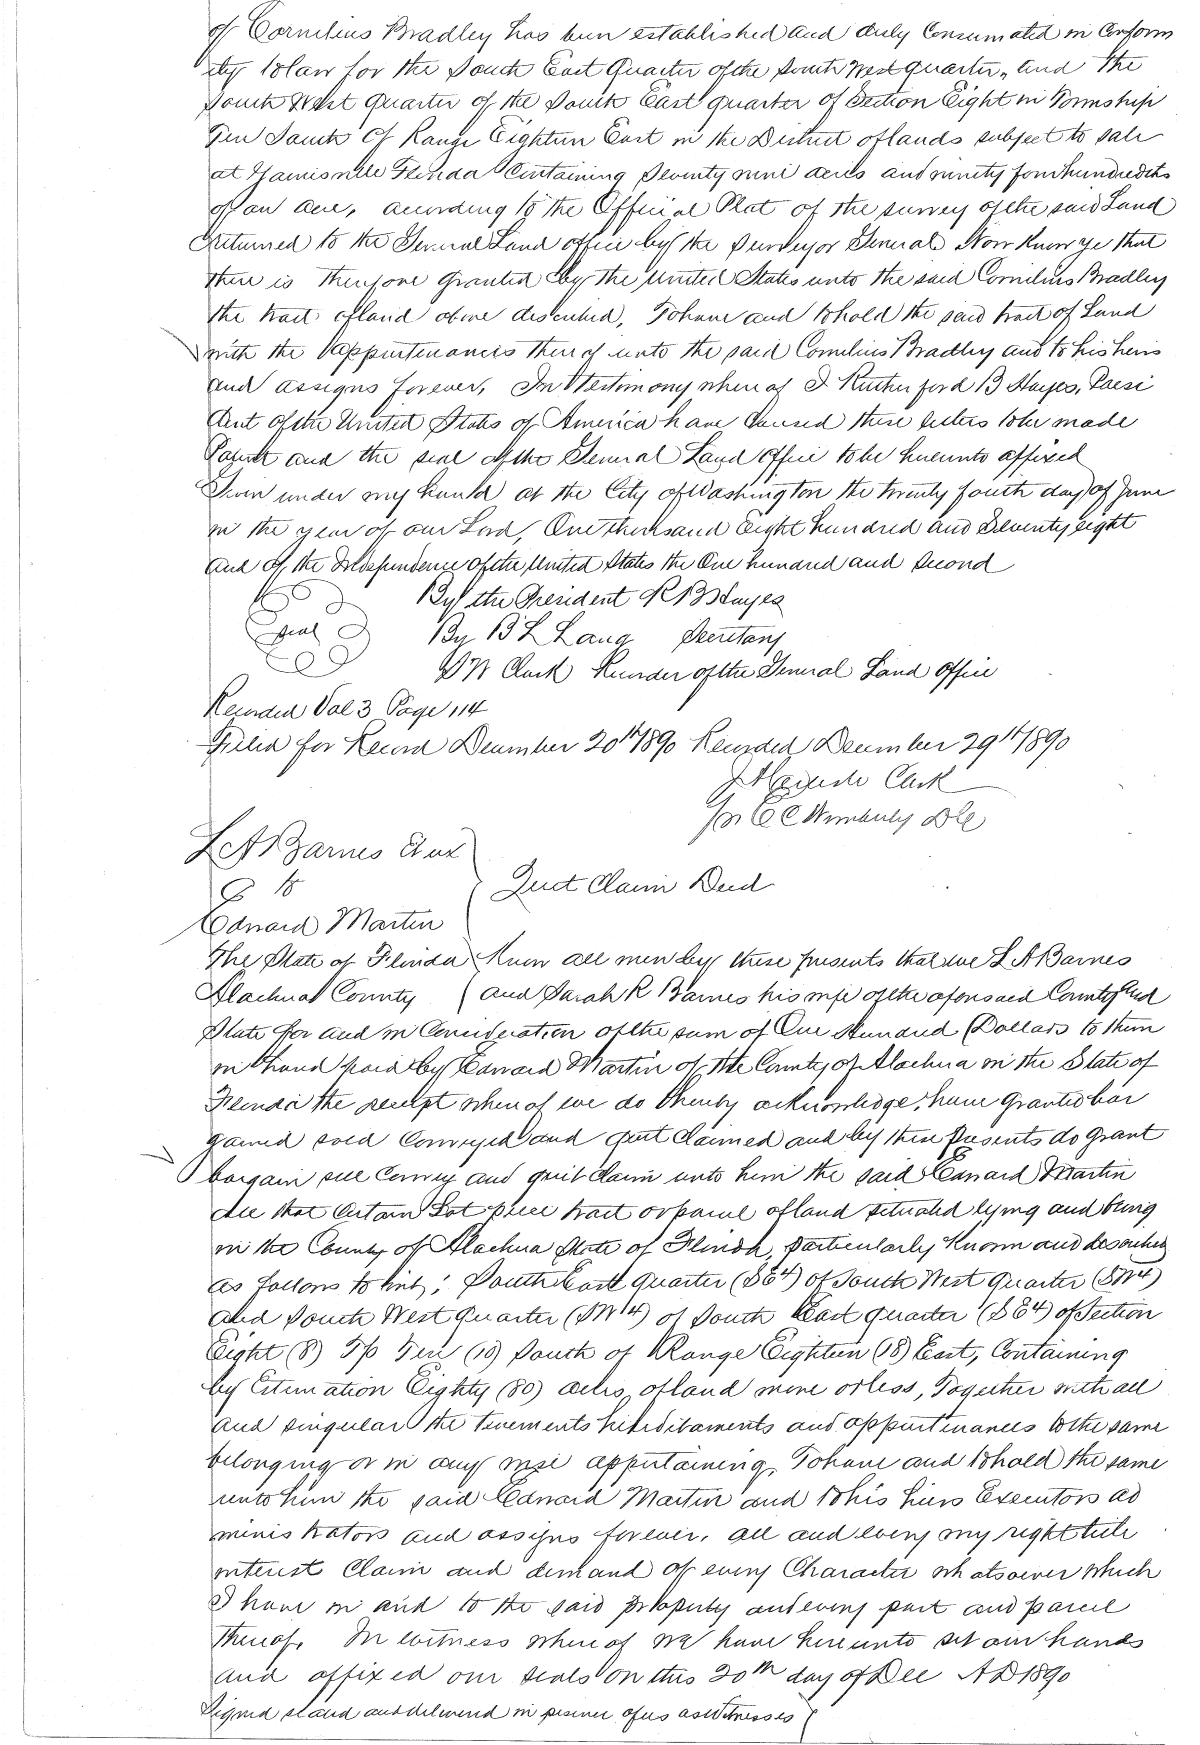 of Cornelius Bradley has been established and duly Consumated in Conform
ity to law for the South East Quarter of the South West quarter, and the
South West quarter of the South East quarter of Section Eight in Township
Ten South of Range Eighteen East in the District of lands subject to sale
at Gainesville Florida Containing Seventy nine acres and ninety four hundredths
of an acre, according to the Official Plat of the survey of the said Land
returned to the General Land office by the Surveyor General Now Know ye that
there is therefore granted by the United States unto the said Cornelius Bradley
the tract of land above described, To have and to hold the said tract of Land
with the appurtenances thereof unto the said Cornelius Bradley and to his heirs
and assigns forever, In Testimony where of I Rutherford B Hayes, Presi
dent of the United States of America have Caused these letters to be made
Patent and the seal of the General Land Office to be hereunto affixed
Given under my hand at the City of Washington the twenty fourth day of June
in the year of our Lord, One thousand Eight hundred and Seventy eight
and of the Independence of the United States the One hundred and Second
By the President R B Hayes
Seal By B L Lang Secretary
S W Clark Recorder of the General Land Office
Recorded Vol 3 Page 114
Filed for Record December 20th 1890 Recorded December 29th 1890
Clerk
Per C C Wimberly D C
L A Barnes Et ux
to
Edward Martin
Quit Claim Deed
The State of Florida Know all men by these presents that we L A Barnes
Alachua County and Sarah R Barnes his wife of the aforesaid County and
State for and in Consideration of the sum of One Hundred Dollars to them
in hand paid by Edward Martin of the County of Alachua in the State of
Florida the receipt where of we do hereby acknowledge, have Granted bar
gained sold Conveyed and quit Claimed and by these presents do Grant
bargain sell Convey and quit Claim unto him the said Edward Martin
all that Certain Lot piece tract or parcel of land situated lying and being
in the County of Alachua State of Florida, particularly Known and described
as follows to wit; South East quarter (SE4) of South West quarter (SW4)
and South West Quarter (SW4) of South East quarter (SE4) of Section
Eight (8) Tp Ten (10) South of Range Eighteen (18) East, Containing
by Estimation Eighty (80) acres of land more or less, Together with all
and singular the tenements hereditaments and appurtenances to the same
belonging or in any wise appertaining, To have and to hold the same
unto him the said Edward Martin and to his heirs Executors ad
ministrators and assigns forever, all and every my right title
interest Claim and demand of every Character whatsoever which
I have in and to the said property and every part and parcel
thereof, In witness where of we have hereunto set our hands
and affixed our seals on this 20th day of Dec A D 1890
Signed sealed and delivered in presence of us as Witnesses